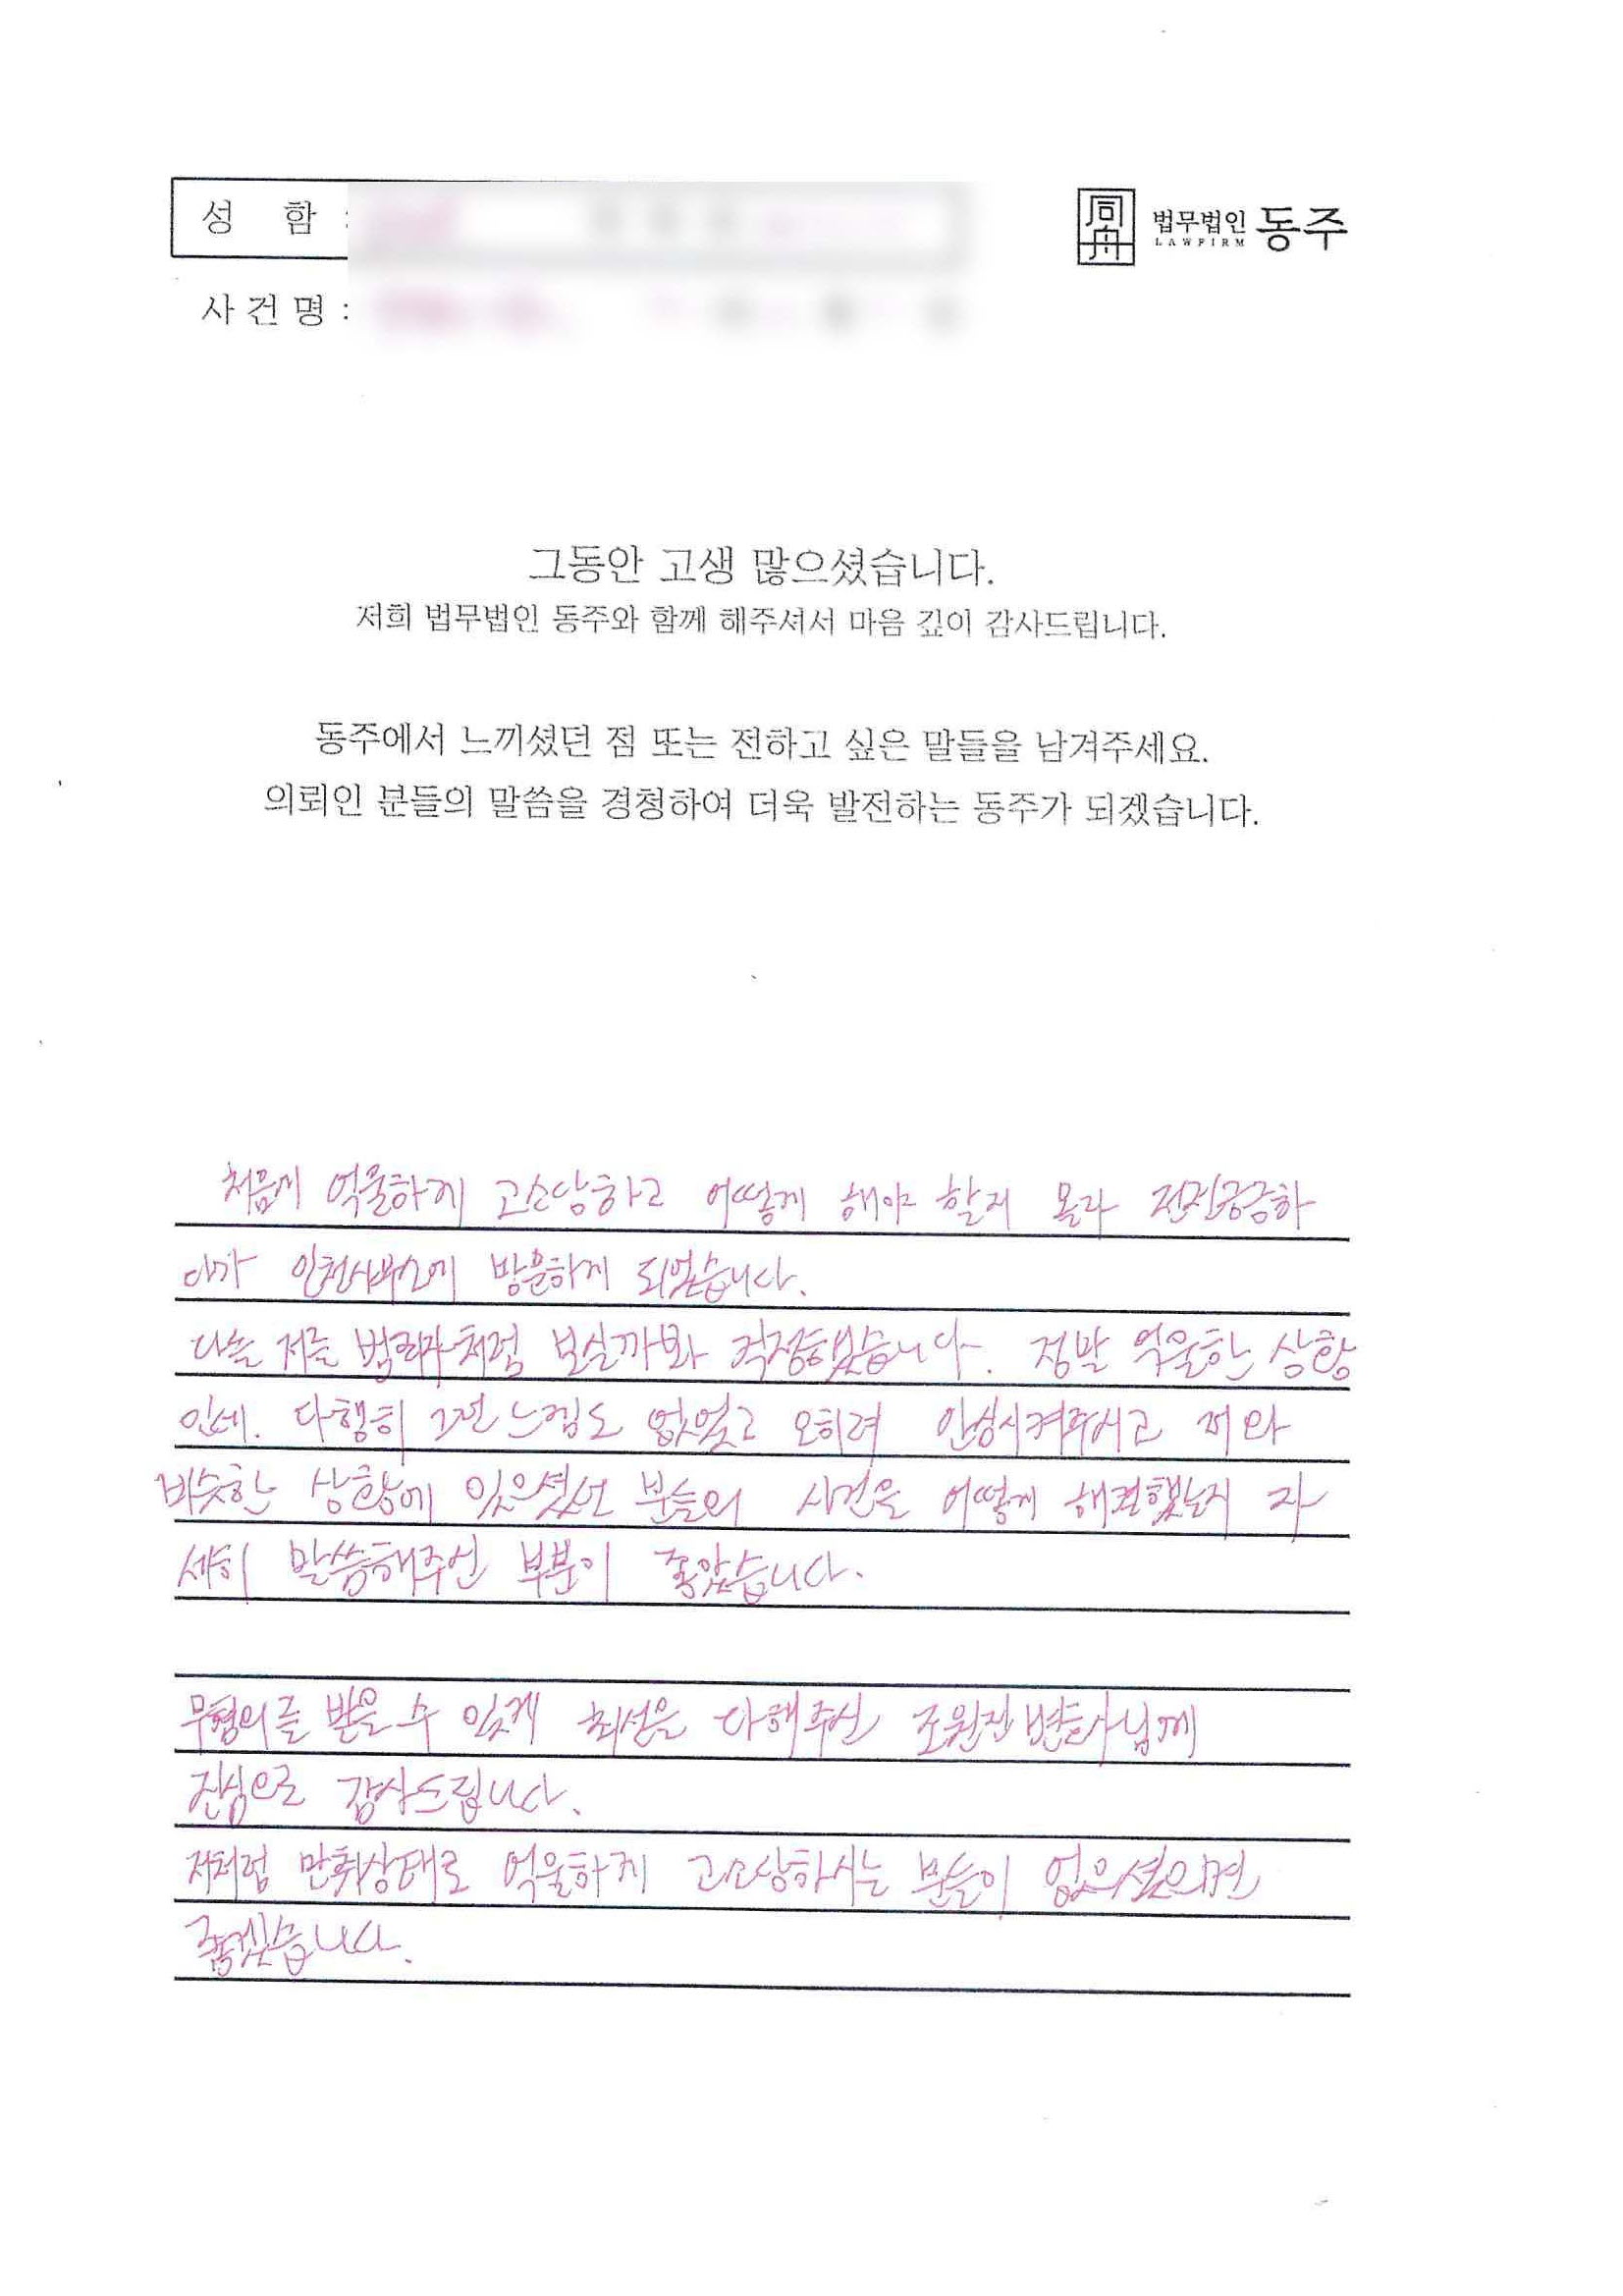 성 함 :
同舟 법무법인 동주
LAWFIRM
사건명 :
그동안 고생 많으셨습니다.
저희 법무법인 동주와 함께 해주셔서 마음 깊이 감사드립니다.
동주에서 느끼셨던 점 또는 전하고 싶은 말들을 남겨주세요.
의뢰인 분들의 말씀을 경청하여 더욱 발전하는 동주가 되겠습니다.
처음에 억울하게 고소당하고 어떻게 해야 할지 몰라 전전긍긍하
다가 인천사무소에 방문하게 되었습니다.
다들 저를 범죄자처럼 보실까봐 걱정했습니다. 정말 억울한 상황
인데. 다행히 그런 느낌도 없었고 오히려 안심시켜주시고 저와
비슷한 상황에 있으셨던 분들의 사건을 어떻게 해결했는지 자
세히 말씀해주신 부분이 좋았습니다.
무혐의를 받을 수 있게 최선을 다해주신 조원진변호사님께
진심으로 감사드립니다.
저처럼 만취상태로 억울하게 고소당하시는 분들이 없으셨으면
좋겠습니다.